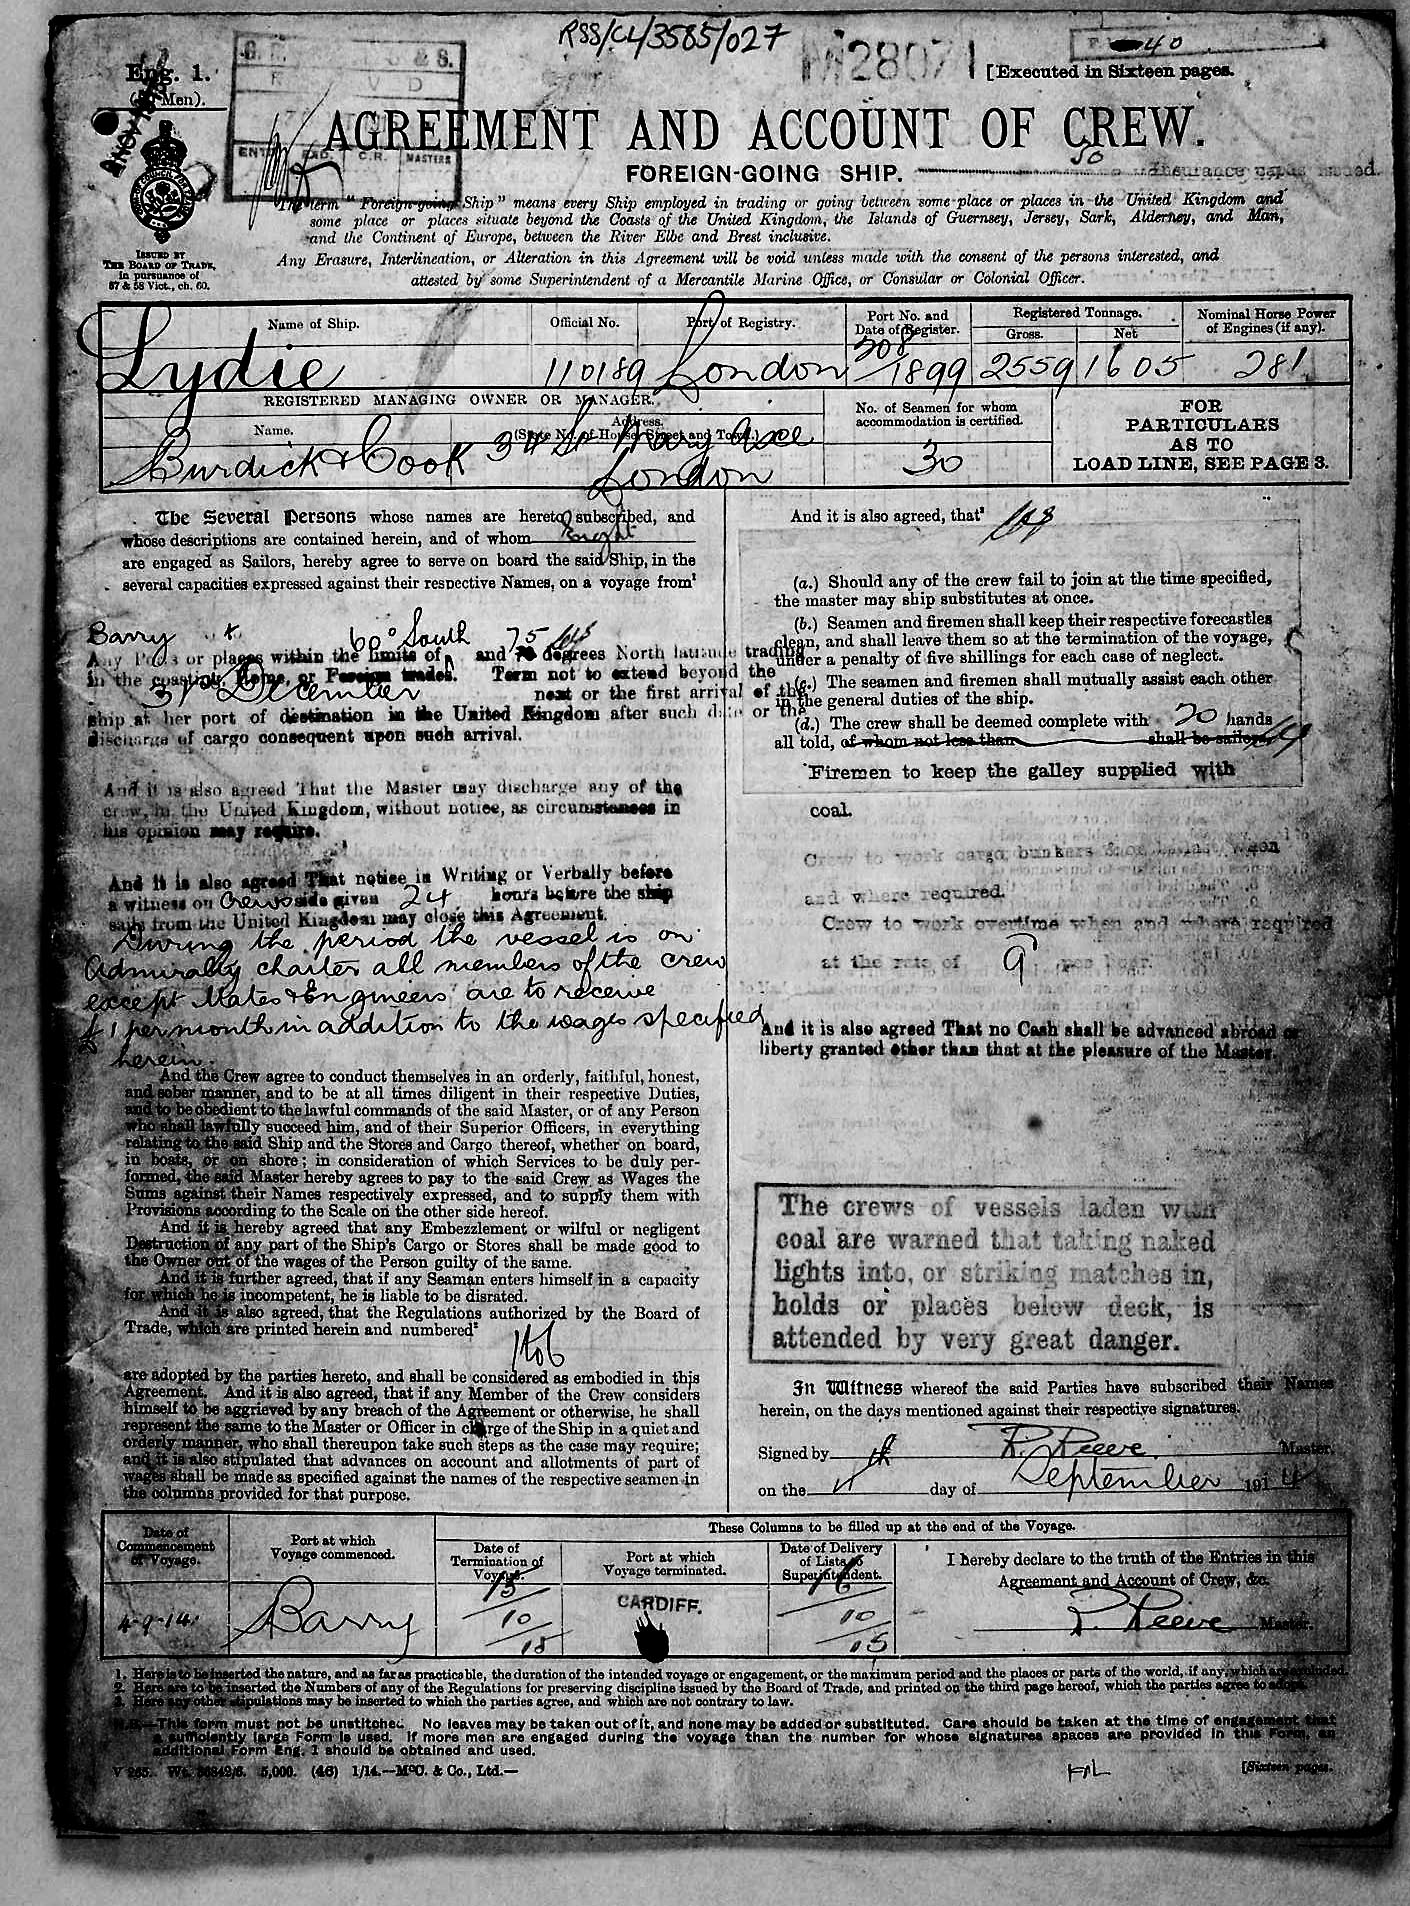 RSS/CL/3585/027
28071
40
Eng. 1.
[Executed in Sixteen pages.
AGREEMENT AND ACCOUNT OF CREW.
FOREIGN-GOING SHIP.
30
Insurance
ISSUED BY
THE BOARD OF TRADE,
in pursuance of
57 & 58 Vict., ch. 60.
The term "Foreign-going Ship" means every Ship employed in trading or going between some place or places in the United Kingdom and
some place or places situate beyond the Coasts of the United Kingdom, the Islands of Guernsey, Jersey, Sark, Alderney, and Man,
and the Continent of Europe, between the River Elbe and Brest inclusive.
Any Erasure, Interlineation, or Alteration in this Agreement will be void unless made with the consent of the persons interested, and
attested by some Superintendent of a Mercantile Marine Office, or Consular or Colonial Officer.
Name of Ship. Official No. Port of Registry. Port No. and Date of Register. Registered Tonnage. Gross. Net Nominal Horse Power of Engines (if any).
Lydie 110189 London 308/1899 2559 1605 281
REGISTERED MANAGING OWNER OR MANAGER.
Name. Address. (State No. of House, Street and Town.)
No. of Seamen for whom accommodation is certified.
Burdick & Cook 34 St Mary Axe
London
30
FOR
PARTICULARS
AS TO
LOAD LINE, SEE PAGE 3.
The Several Persons whose names are hereto subscribed, and
whose descriptions are contained herein, and of whom Eight
are engaged as Sailors, hereby agree to serve on board the said Ship, in the
several capacities expressed against their respective Names, on a voyage from¹
Barry & 60° South 75
Any Ports or places within the limits of and degrees North latitude trading
in the coasting, Home, or Foreign trades. Term not to extend beyond the
31st December next or the first arrival of the
ship at her port of destination in the United Kingdom after such date or the
discharge of cargo consequent upon such arrival.
And it is also agreed That the Master may discharge any of the
crew, in the United Kingdom, without notice, as circumstances in
his opinion may require.
And it is also agreed That notice in Writing or Verbally before
a witness on Crews side given 24 hours before the ship
sails from the United Kingdom may close this Agreement.
During the period the vessel is on
Admiralty charter all members of the crew
except Mates & Engineers are to receive
£1 per month in addition to the wages specified
herein.
And the Crew agree to conduct themselves in an orderly, faithful, honest,
and sober manner, and to be at all times diligent in their respective Duties,
and to be obedient to the lawful commands of the said Master, or of any Person
who shall lawfully succeed him, and of their Superior Officers, in everything
relating to the said Ship and the Stores and Cargo thereof, whether on board,
in boats, or on shore; in consideration of which Services to be duly per-
formed, the said Master hereby agrees to pay to the said Crew as Wages the
Sums against their Names respectively expressed, and to supply them with
Provisions according to the Scale on the other side hereof.
And it is hereby agreed that any Embezzlement or wilful or negligent
Destruction of any part of the Ship's Cargo or Stores shall be made good to
the Owner out of the wages of the Person guilty of the same.
And it is further agreed, that if any Seaman enters himself in a capacity
for which he is incompetent, he is liable to be disrated.
And it is also agreed, that the Regulations authorized by the Board of
Trade, which are printed herein and numbered²
1 to 6
are adopted by the parties hereto, and shall be considered as embodied in this
Agreement. And it is also agreed, that if any Member of the Crew considers
himself to be aggrieved by any breach of the Agreement or otherwise, he shall
represent the same to the Master or Officer in charge of the Ship in a quiet and
orderly manner, who shall thereupon take such steps as the case may require;
and it is also stipulated that advances on account and allotments of part of
wages shall be made as specified against the names of the respective seamen in
the columns provided for that purpose.
And it is also agreed, that³
(a.) Should any of the crew fail to join at the time specified,
the master may ship substitutes at once.
(b.) Seamen and firemen shall keep their respective forecastles
clean, and shall leave them so at the termination of the voyage,
under a penalty of five shillings for each case of neglect.
(c.) The seamen and firemen shall mutually assist each other
in the general duties of the ship.
(d.) The crew shall be deemed complete with 20 hands
all told, of whom not less than shall be sailors
Firemen to keep the galley supplied with
coal.
Crew to work cargo, bunkers when
and where required.
Crew to work overtime when and where required
at the rate of 9 per hour.
And it is also agreed That no Cash shall be advanced abroad or
liberty granted other than that at the pleasure of the Master.
The crews of vessels laden with
coal are warned that taking naked
lights into, or striking matches in,
holds or places below deck, is
attended by very great danger.
In Witness whereof the said Parties have subscribed their Names
herein, on the days mentioned against their respective signatures.
Signed by R. Reeve Master.
on the 4 day of September 1914
Date of Commencement of Voyage. Port at which Voyage commenced. These Columns to be filled up at the end of the Voyage.
Date of Termination of Voyage. Port at which Voyage terminated. Date of Delivery of Lists to Superintendent.
I hereby declare to the truth of the Entries in this
Agreement and Account of Crew, &c.
4-9-14 Barry 15/10/15 CARDIFF. 16/10/15 R. Reeve Master.
1. Here is to be inserted the nature, and as far as practicable, the duration of the intended voyage or engagement, or the maximum period and the places or parts of the world, if any, which are excluded.
2. Here are to be inserted the Numbers of any of the Regulations for preserving discipline issued by the Board of Trade, and printed on the third page hereof, which the parties agree to adopt.
3. Here any other stipulations may be inserted to which the parties agree, and which are not contrary to law.
N.B.—This form must not be unstitched. No leaves may be taken out of it, and none may be added or substituted. Care should be taken at the time of engagement that
a sufficiently large Form is used. If more men are engaged during the voyage than the number for whose signatures spaces are provided in this Form, an
additional Form Eng. 1 should be obtained and used.
5,000. (46) 1/14.—McC. & Co., Ltd.—
[Sixteen pages.